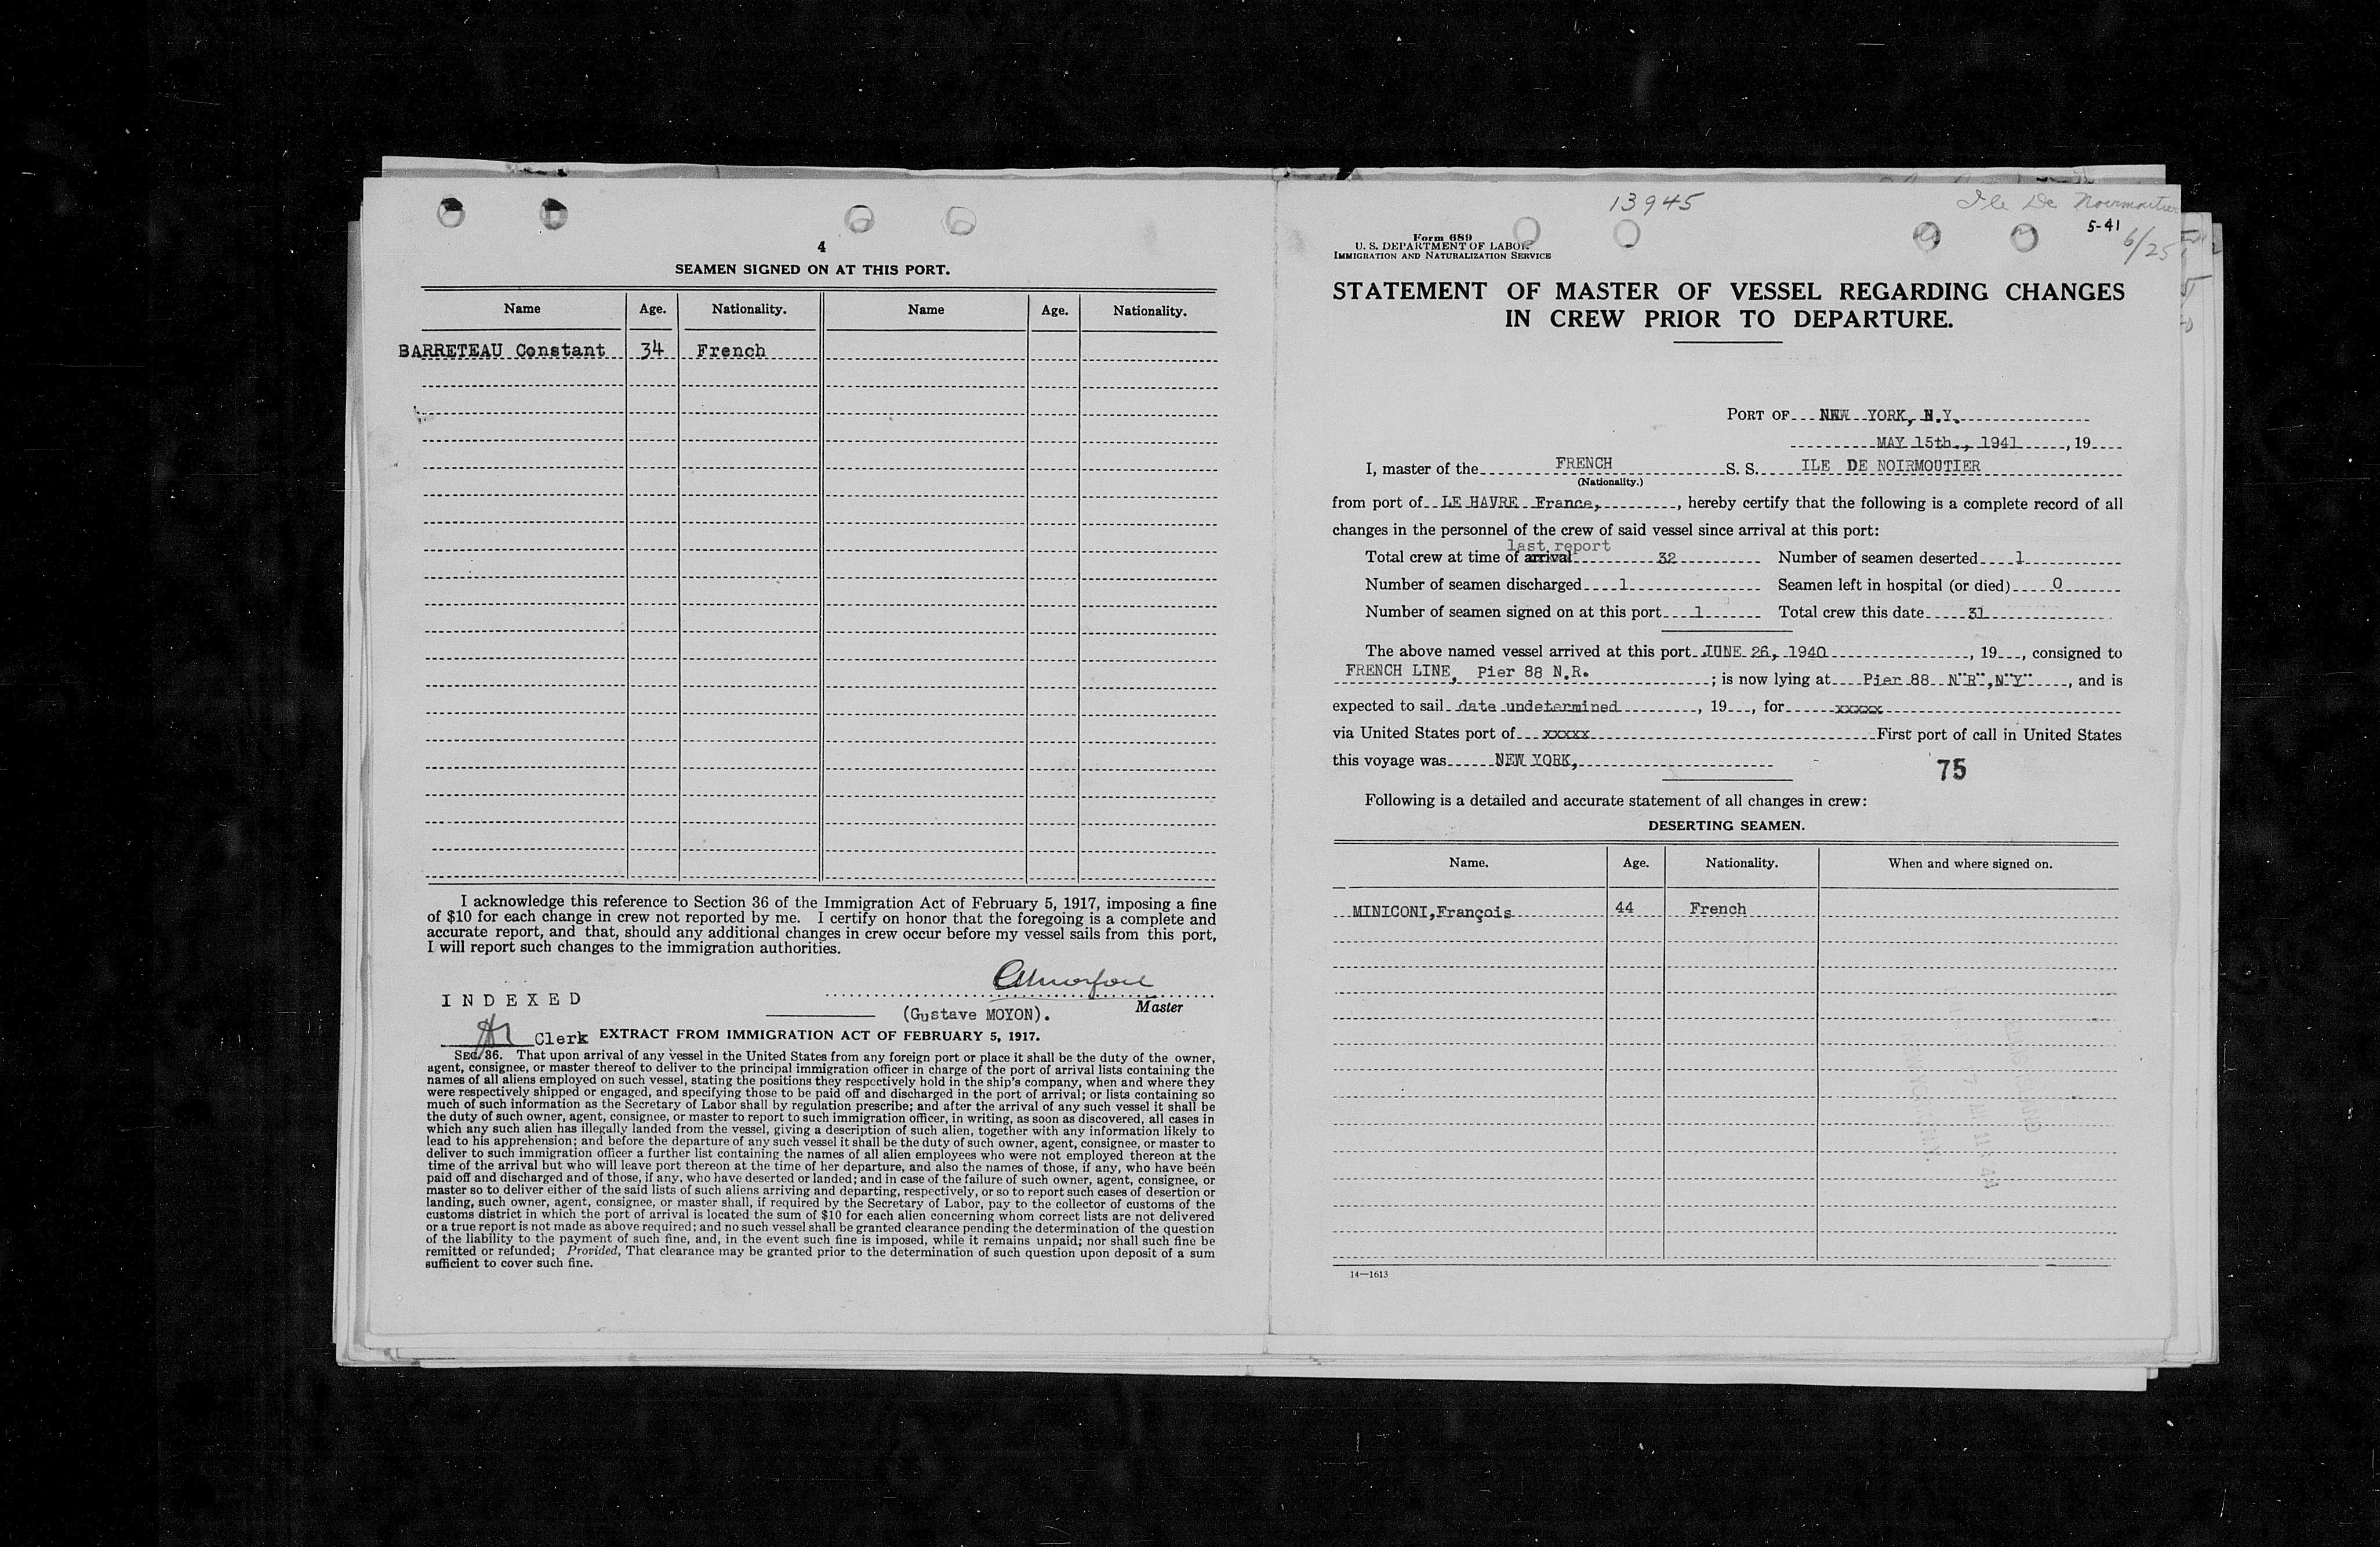 4
SEAMEN SIGNED ON AT THIS PORT.
Name Age. Nationality. Name Age. Nationality.
BARRETEAU Constant 34 French
I acknowledge this reference to Section 36 of the Immigration Act of February 5, 1917, imposing a fine
of $10 for each change in crew not reported by me. I certify on honor that the foregoing is a complete and
accurate report, and that, should any additional changes in crew occur before my vessel sails from this port,
I will report such changes to the immigration authorities.
INDEXED
Master
(Gustave MOYON).
Clerk EXTRACT FROM IMMIGRATION ACT OF FEBRUARY 5, 1917.
SEC. 36. That upon arrival of any vessel in the United States from any foreign port or place it shall be the duty of the owner,
agent, consignee, or master thereof to deliver to the principal immigration officer in charge of the port of arrival lists containing the
names of all aliens employed on such vessel, stating the positions they respectively hold in the ship's company, when and where they
were respectively shipped or engaged, and specifying those to be paid off and discharged in the port of arrival; or lists containing so
much of such information as the Secretary of Labor shall by regulation prescribe; and after the arrival of any such vessel it shall be
the duty of such owner, agent, consignee, or master to report to such immigration officer, in writing, as soon as discovered, all cases in
which any such alien has illegally landed from the vessel, giving a description of such alien, together with any information likely to
lead to his apprehension; and before the departure of any such vessel it shall be the duty of such owner, agent, consignee, or master to
deliver to such immigration officer a further list containing the names of all alien employees who were not employed thereon at the
time of the arrival but who will leave port thereon at the time of her departure, and also the names of those, if any, who have been
paid off and discharged and of those, if any, who have deserted or landed; and in case of the failure of such owner, agent, consignee, or
master so to deliver either of the said lists of such aliens arriving and departing, respectively, or so to report such cases of desertion or
landing, such owner, agent, consignee, or master shall, if required by the Secretary of Labor, pay to the collector of customs of the
customs district in which the port of arrival is located the sum of $10 for each alien concerning whom correct lists are not delivered
or a true report is not made as above required; and no such vessel shall be granted clearance pending the determination of the question
of the liability to the payment of such fine, and, in the event such fine is imposed, while it remains unpaid; nor shall such fine be
remitted or refunded; Provided, That clearance may be granted prior to the determination of such question upon deposit of a sum
sufficient to cover such fine.
13945
Ile De Noirmoutier
5-41
6/25
Form 689
U. S. DEPARTMENT OF LABOR
IMMIGRATION AND NATURALIZATION SERVICE
STATEMENT OF MASTER OF VESSEL REGARDING CHANGES
IN CREW PRIOR TO DEPARTURE.
PORT OF NEW YORK, N.Y.
MAY 15th., 1941, 19
I, master of the FRENCH S. S. ILE DE NOIRMOUTIER
(Nationality.)
from port of LE HAVRE France, , hereby certify that the following is a complete record of all
changes in the personnel of the crew of said vessel since arrival at this port:
last report
Total crew at time of arrival 32 Number of seamen deserted 1
Number of seamen discharged 1 Seamen left in hospital (or died) 0
Number of seamen signed on at this port 1 Total crew this date 31
The above named vessel arrived at this port JUNE 26, 1940, 19, consigned to
FRENCH LINE, Pier 88 N.R. ; is now lying at Pier 88 N"R",N"Y", and is
expected to sail date undetermined, 19, for xxxxx
via United States port of xxxxx First port of call in United States
this voyage was NEW YORK,
75
Following is a detailed and accurate statement of all changes in crew:
DESERTING SEAMEN.
Name. Age. Nationality. When and where signed on.
MINICONI,François 44 French
14—1613